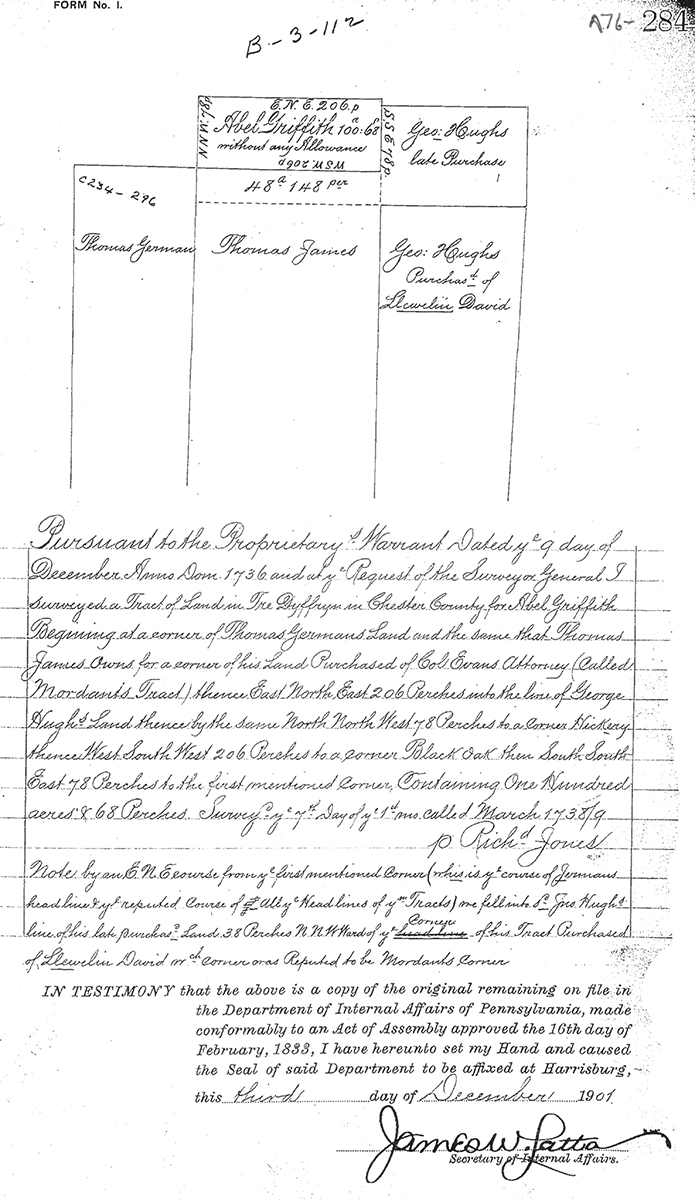 FORM No. 1.
B-3-112
A76- 284
E.N.E. 206.p
Abel Griffith 100ª:68
without any Allowance
WSW 206p
NNW.78p
S.S E 78p.
Geo: Hughs
late Purchase
C234-296
48ª 148 per
Thomas German
Thomas James
Geo: Hughs
Purchasᵈ of
Llewelin David
Pursuant to the Proprietaryˢ Warrant Dated yᵉ 9 day of
December Anno Dom. 1736 and at yᵉ Request of the Surveyor General I
surveyed a Tract of Land in Tre Dyffryn in Chester County for Abel Griffith
Begining at a corner of Thomas Germans Land and the same that Thomas
James Owns for a corner of his Land Purchased of Col. Evans Attorney (Called
Mordants Tract) thence East North East 206 Perches into the line of George
Hughˢ Land thence by the same North North West 78 Perches to a corner Hickery
thence West South West 206 Perches to a corner Black Oak then South South
East 78 Perches to the first mentioned Corner, Containing One Hundred
acres & 68 Perches. Surveyᵈ yᵉ 7ᵗʰ Day of yᵉ 1ˢᵗ mo. called March 1738/9
p Richᵈ Jones
Note by an E.N.E course from yᵉ first mentioned Corner (whis is yᵉ course of Jermans
headline & yᵉ reputed Course of all yᵉ Head lines of yᵐ Tracts) we fell into Sᵈ Jno Hughˢ
line of his late purchasᵈ Land 38 Perches N N W Ward of yᵉ head line Corner of his Tract Purchased
of Llewelin David wᶜʰ corner was Reputed to be Mordants Corner
IN TESTIMONY that the above is a copy of the original remaining on file in
the Department of Internal Affairs of Pennsylvania, made
conformably to an Act of Assembly approved the 16th day of
February, 1833, I have hereunto set my Hand and caused
the Seal of said Department to be affixed at Harrisburg,
this third day of December 1901
James W. Latta
Secretary of Internal Affairs.